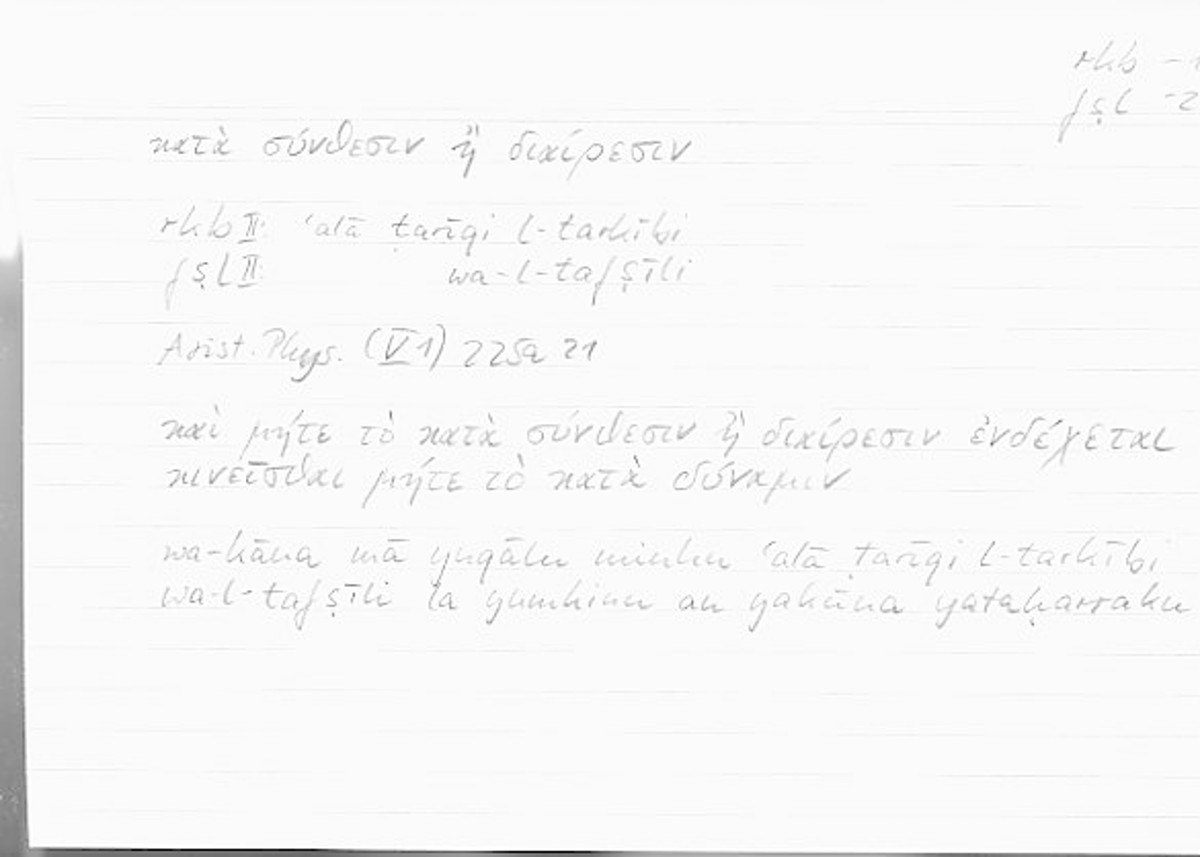 rkb -1
fṣl -2
κατὰ σύνθεσιν ἢ διαίρεσιν
rkb II: ʿalā ṭarīqi l-tarkībi
fṣl II: wa-l-tafṣīli
Arist. Phys. (V 1) 225a 21
καὶ μήτε τὸ κατὰ σύνθεσιν ἢ διαίρεσιν ἐνδέχεται
κινεῖσθαι μήτε τὸ κατὰ δύναμιν
wa-kāna mā yuqālu minhu ʿalā ṭarīqi l-tarkībi
wa-l-tafṣīli la yumkinu an yakūna yataḥarraku